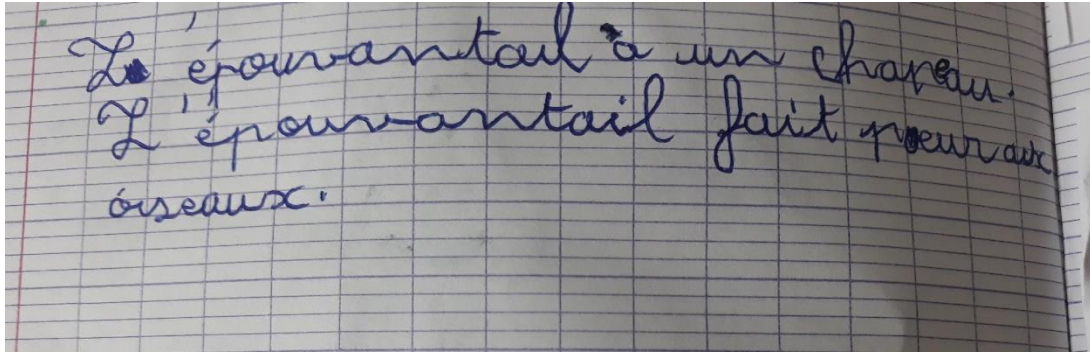 L'épouvantail a un chapeau.
L'épouvantail fait peur aux
oiseaux.